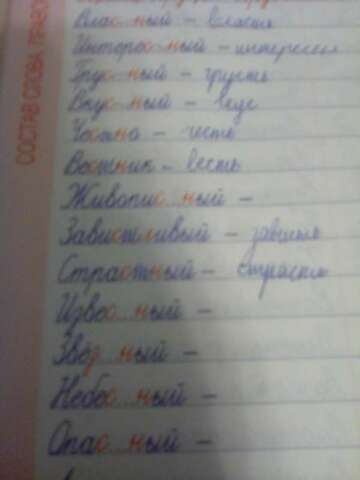 Влас...ный – власть
Интерес...ный – интересы
Грус...ный – грусть
Вкус...ный – вкус
Чес...но – честь
Вес...ник – весть
Живопис...ный –
Завистливый – завист
Страстный – страсть
Извес...ный –
Звёз...ный –
Небес...ный –
Опас...ный –
СОСТАВ СЛОВА. ПРАВО